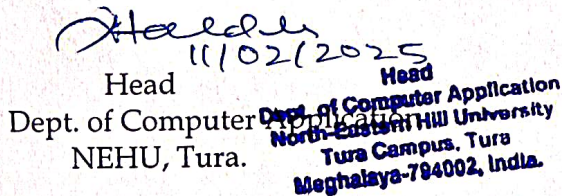 11/02/2025
Head
Dept. of Computer Application
NEHU, Tura.
Head
Dept. of Computer Application
North-Eastern Hill University
Tura Campus, Tura
Meghalaya-794002, India.